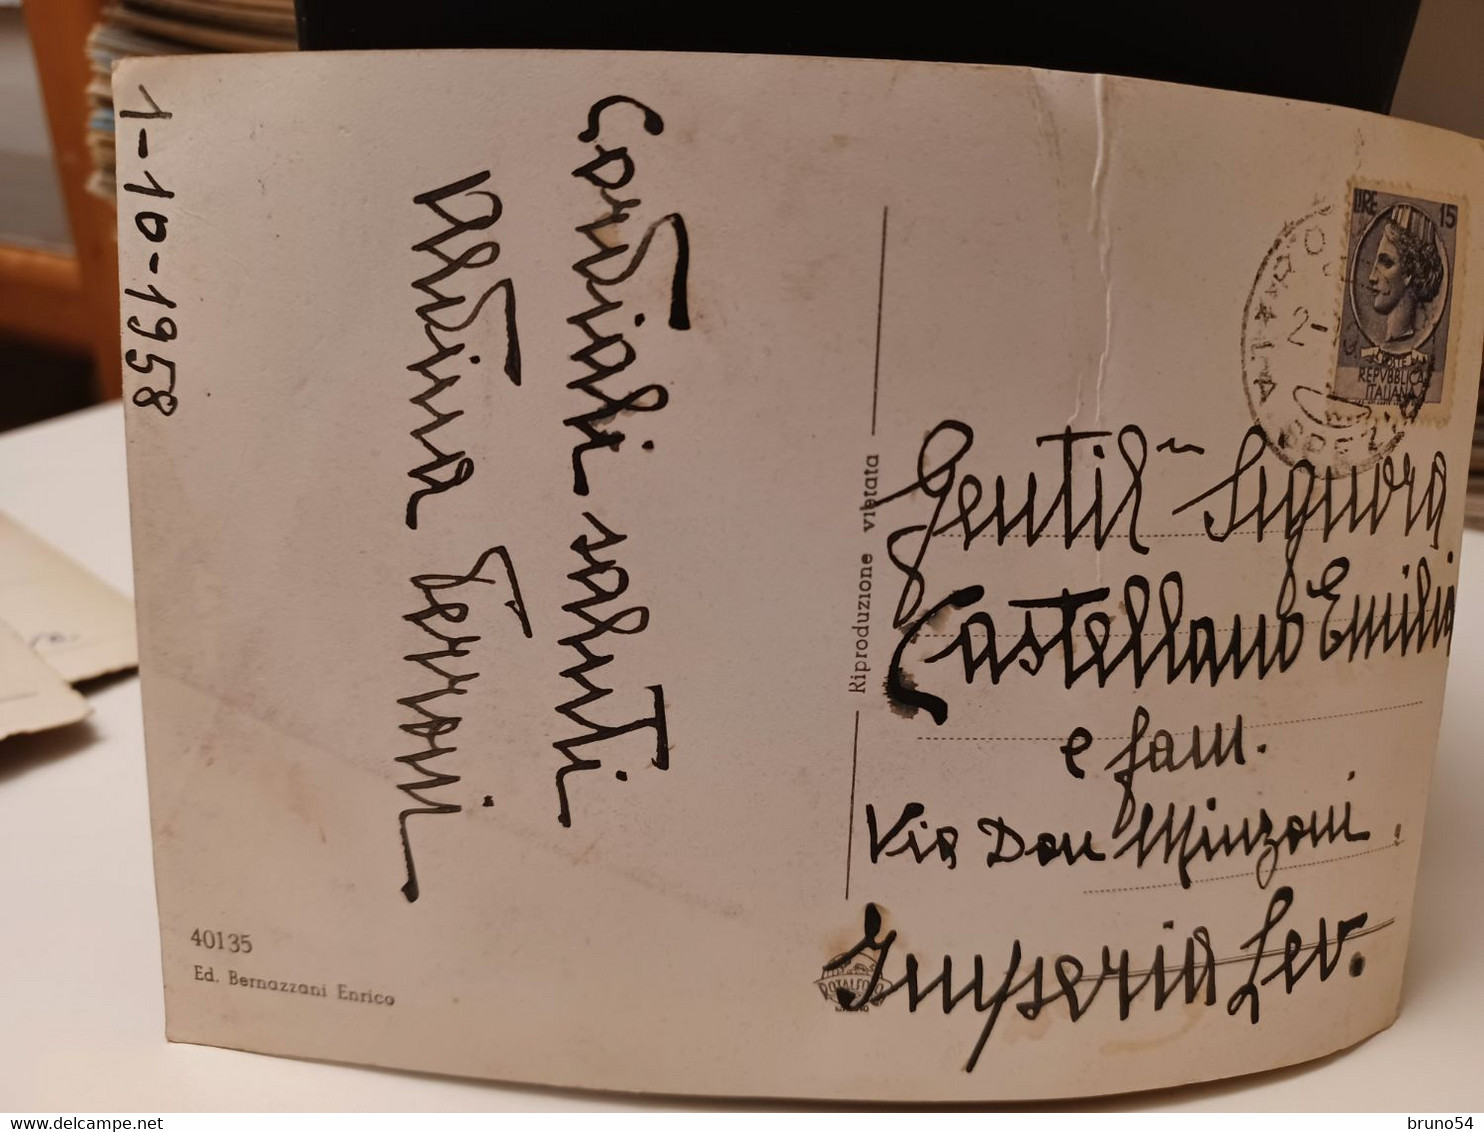 1-10-1958
Cordiali saluti
Ferrari
40135
Ed. Bernazzani Enrico
Riproduzione vietata
LIRE 15
POSTE
REPVBBLICA
ITALIANA
2-
Gentil.ma Signora
Castellano Emilia
e fam.
Via Don Minzoni.
Imperia Lev.
ROTALFOTO
bruno54